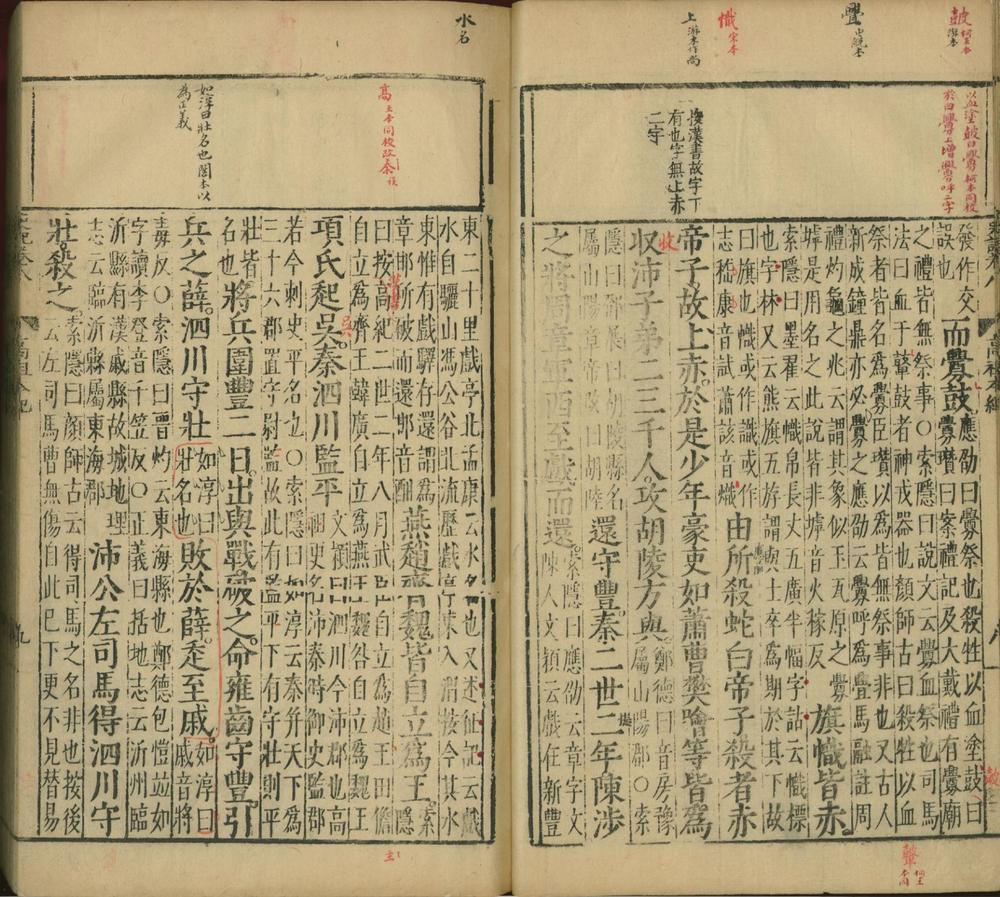 皷 柯王本
澤本
舋 中統本
幟 宋本
上 游本作尚
以血塗皷曰釁柯本同校
於曰釁上增釁呼二字
按漢書故字下
有也字無上赤
二字
發作交
誤也
而釁鼓
應劭曰釁祭也殺牲以血塗鼓曰
釁瓚曰案禮記及大戴禮有釁廟
之禮皆無祭事○索隱曰說文云釁血祭也司馬
法曰血于鼙鼓者神戎器也顏師古曰殺牲以血
祭者皆名爲釁臣瓚以爲皆無祭事非也又古人
新成鐘鼎亦必釁之應劭云釁呼爲舋馬融註周
禮灼龜之兆云謂其象似玉瓦原之釁
墟是用名之此說皆非罅音火稼反
旗幟皆赤
索隱曰墨翟云幟帛長丈五廣半幅字詁云幟標
也字林又云熊旗五斿謂與士卒爲期於其下故
曰旗也幟或作識或作
志嵇康音試蕭該音熾
由所殺蛇白帝子殺者赤
帝子故上赤於是少年豪吏如蕭曹樊噲等皆爲
收沛子弟二三千人攻胡陵方與
鄭德曰音房豫
屬山陽郡○索
隱曰鄧展曰胡陵縣名
屬山陽章帝改曰胡陸
還守豐秦二世二年陳涉
之將周章軍西至戲而還
索隱曰應劭云章字文
陳人文穎云戲在新豐
水名
高 王本同校改秦
如淳曰壯名也閣本以
爲正義
東二十里戲亭北孟康云水名也又述征記云戲
水自驪山馮公谷北流歷戲亭東入渭按今其水
東惟有戲驛存還謂爲
章邯所破而還邯音酣
燕趙齊魏皆自立爲王
索隱
曰按高紀二世二年八月武臣自立爲趙王田儋
自立爲齊王韓廣自立爲燕王魏咎自立爲魏王
項氏起吳秦泗川監平
文穎曰泗川今沛郡也高
祖更名沛秦時御史監郡
若今刺史平名也○索隱曰如淳云秦并天下爲
三十六郡置守尉監故此有監平下有守壯則平
壯皆
名也
將兵圍豐二日出與戰破之命雍齒守豐引
兵之薛泗川守壯
如淳曰
壯名也
敗於薛走至戚
如淳曰
戚音將
毒反○索隱曰晋灼云東海縣也鄭德包愷竝如
字讀李登音千笠反○正義曰括地志云沂州臨
沂縣有漢戚縣故城地理
志云臨沂縣屬東海郡
沛公左司馬得泗川守
壯殺之
索隱曰顏師古云得司馬之名非也按後
云左司馬曹無傷自此巳下更不見替易